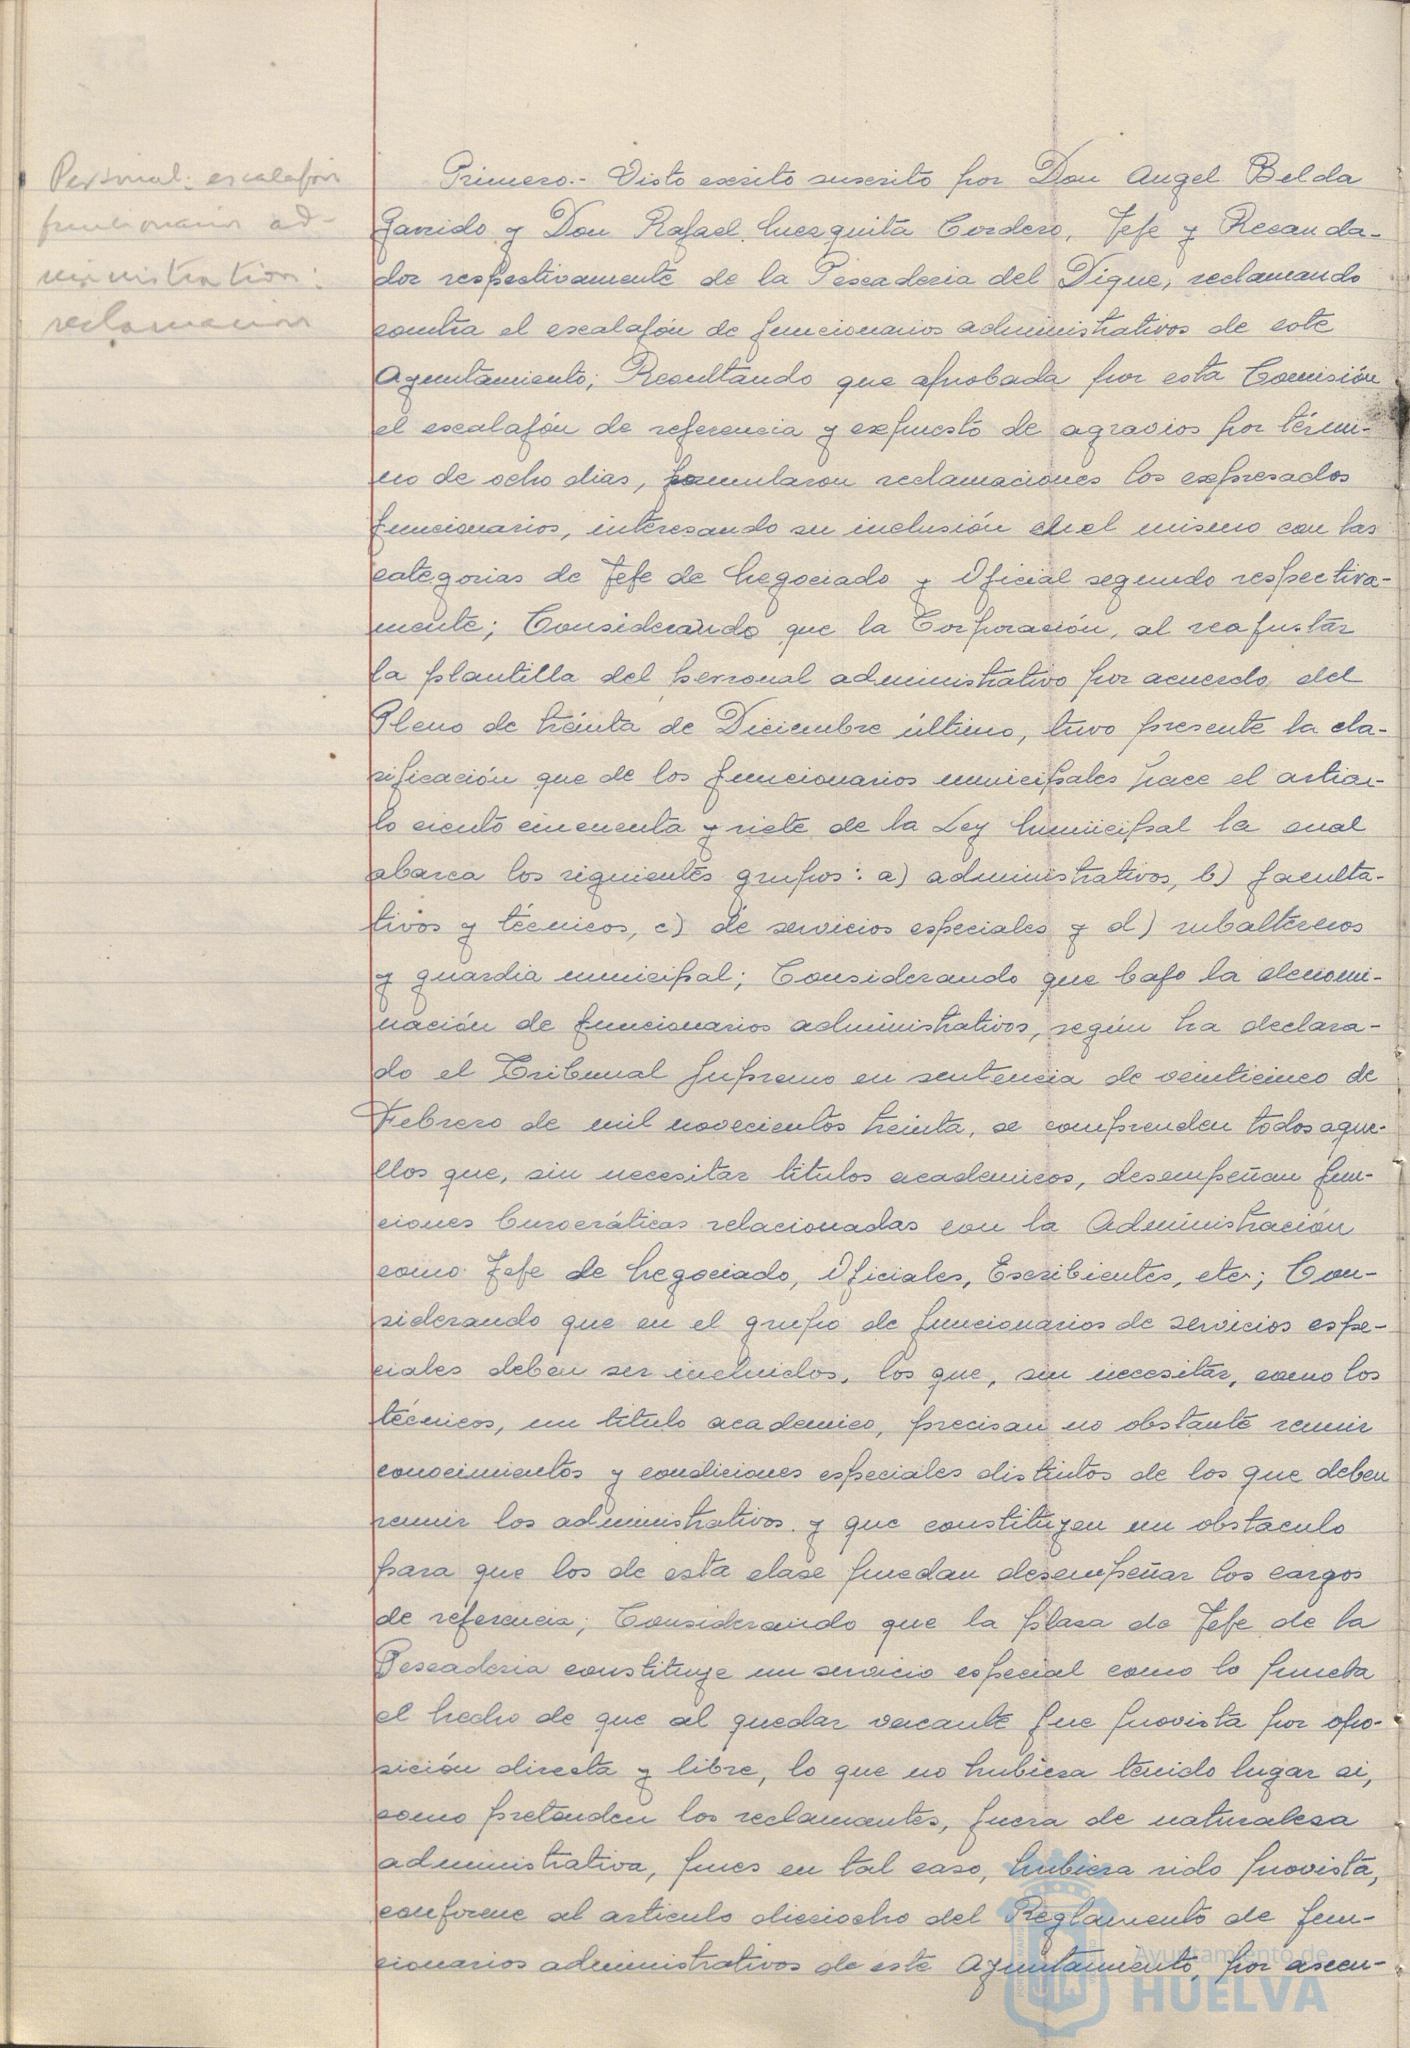 Personal: escalafón
funcionarios ad-
ministrativos:
reclamación
Primero.- Visto escrito suscrito por Don Angel Belda
Garrido y Don Rafael Mezquita Cordero, Jefe y Recauda-
dor respectivamente de la Pescaderia del Dique, reclamando
contra el escalafón de funcionarios administrativos de este
Ayuntamiento; Resultando que aprobada por esta Comisión
el escalafón de referencia y expuesto de agravios por térmi-
no de ocho dias, formularon reclamaciones los expresados
funcionarios, interesando su inclusión en el mismo con las
categorias de Jefe de Negociado y Oficial segundo respectiva-
mente; Considerando que la Corporación, al reajustar
la plantilla del personal administrativo por acuerdo del
Pleno de treinta de Diciembre último, tuvo presente la cla-
sificación que de los funcionarios municipales hace el articu-
lo ciento cincuenta y siete de la Ley Municipal la cual
abarca los siguientes grupos: a) administrativos, b) faculta-
tivos y técnicos, c) de servicios especiales y d) subalternos
y guardia municipal; Considerando que bajo la denomi-
nación de funcionarios administrativos, según ha declara-
do el Tribunal Supremo en sentencia de veinticinco de
Febrero de mil novecientos treinta, se comprenden todos aque-
llos que, sin necesitar titulos academicos, desempeñan fun-
ciones burocráticas relacionadas con la Administración
como Jefe de Negociado, Oficiales, Escribientes, etc; Con-
siderando que en el grupo de funcionarios de servicios espe-
ciales deben ser incluidos, los que, sin necesitar, como los
técnicos, un titulo academico, precisan no obstante reunir
conocimientos y condiciones especiales distintos de los que deben
reunir los administrativos y que constituyen un obstaculo
para que los de esta clase puedan desempeñar los cargos
de referencia; Considerando que la plaza de Jefe de la
Pescaderia constituye un servicio especial como lo prueba
el hecho de que al quedar vacante fue provista por opo-
sición directa y libre, lo que no hubiera tenido lugar si,
como pretenden los reclamantes, fuera de naturaleza
administrativa, pues en tal caso, hubiera sido provista,
conforme al articulo dieciocho del Reglamento de fun-
cionarios administrativos de este Ayuntamiento, por ascen-
Ayuntamiento de
HUELVA